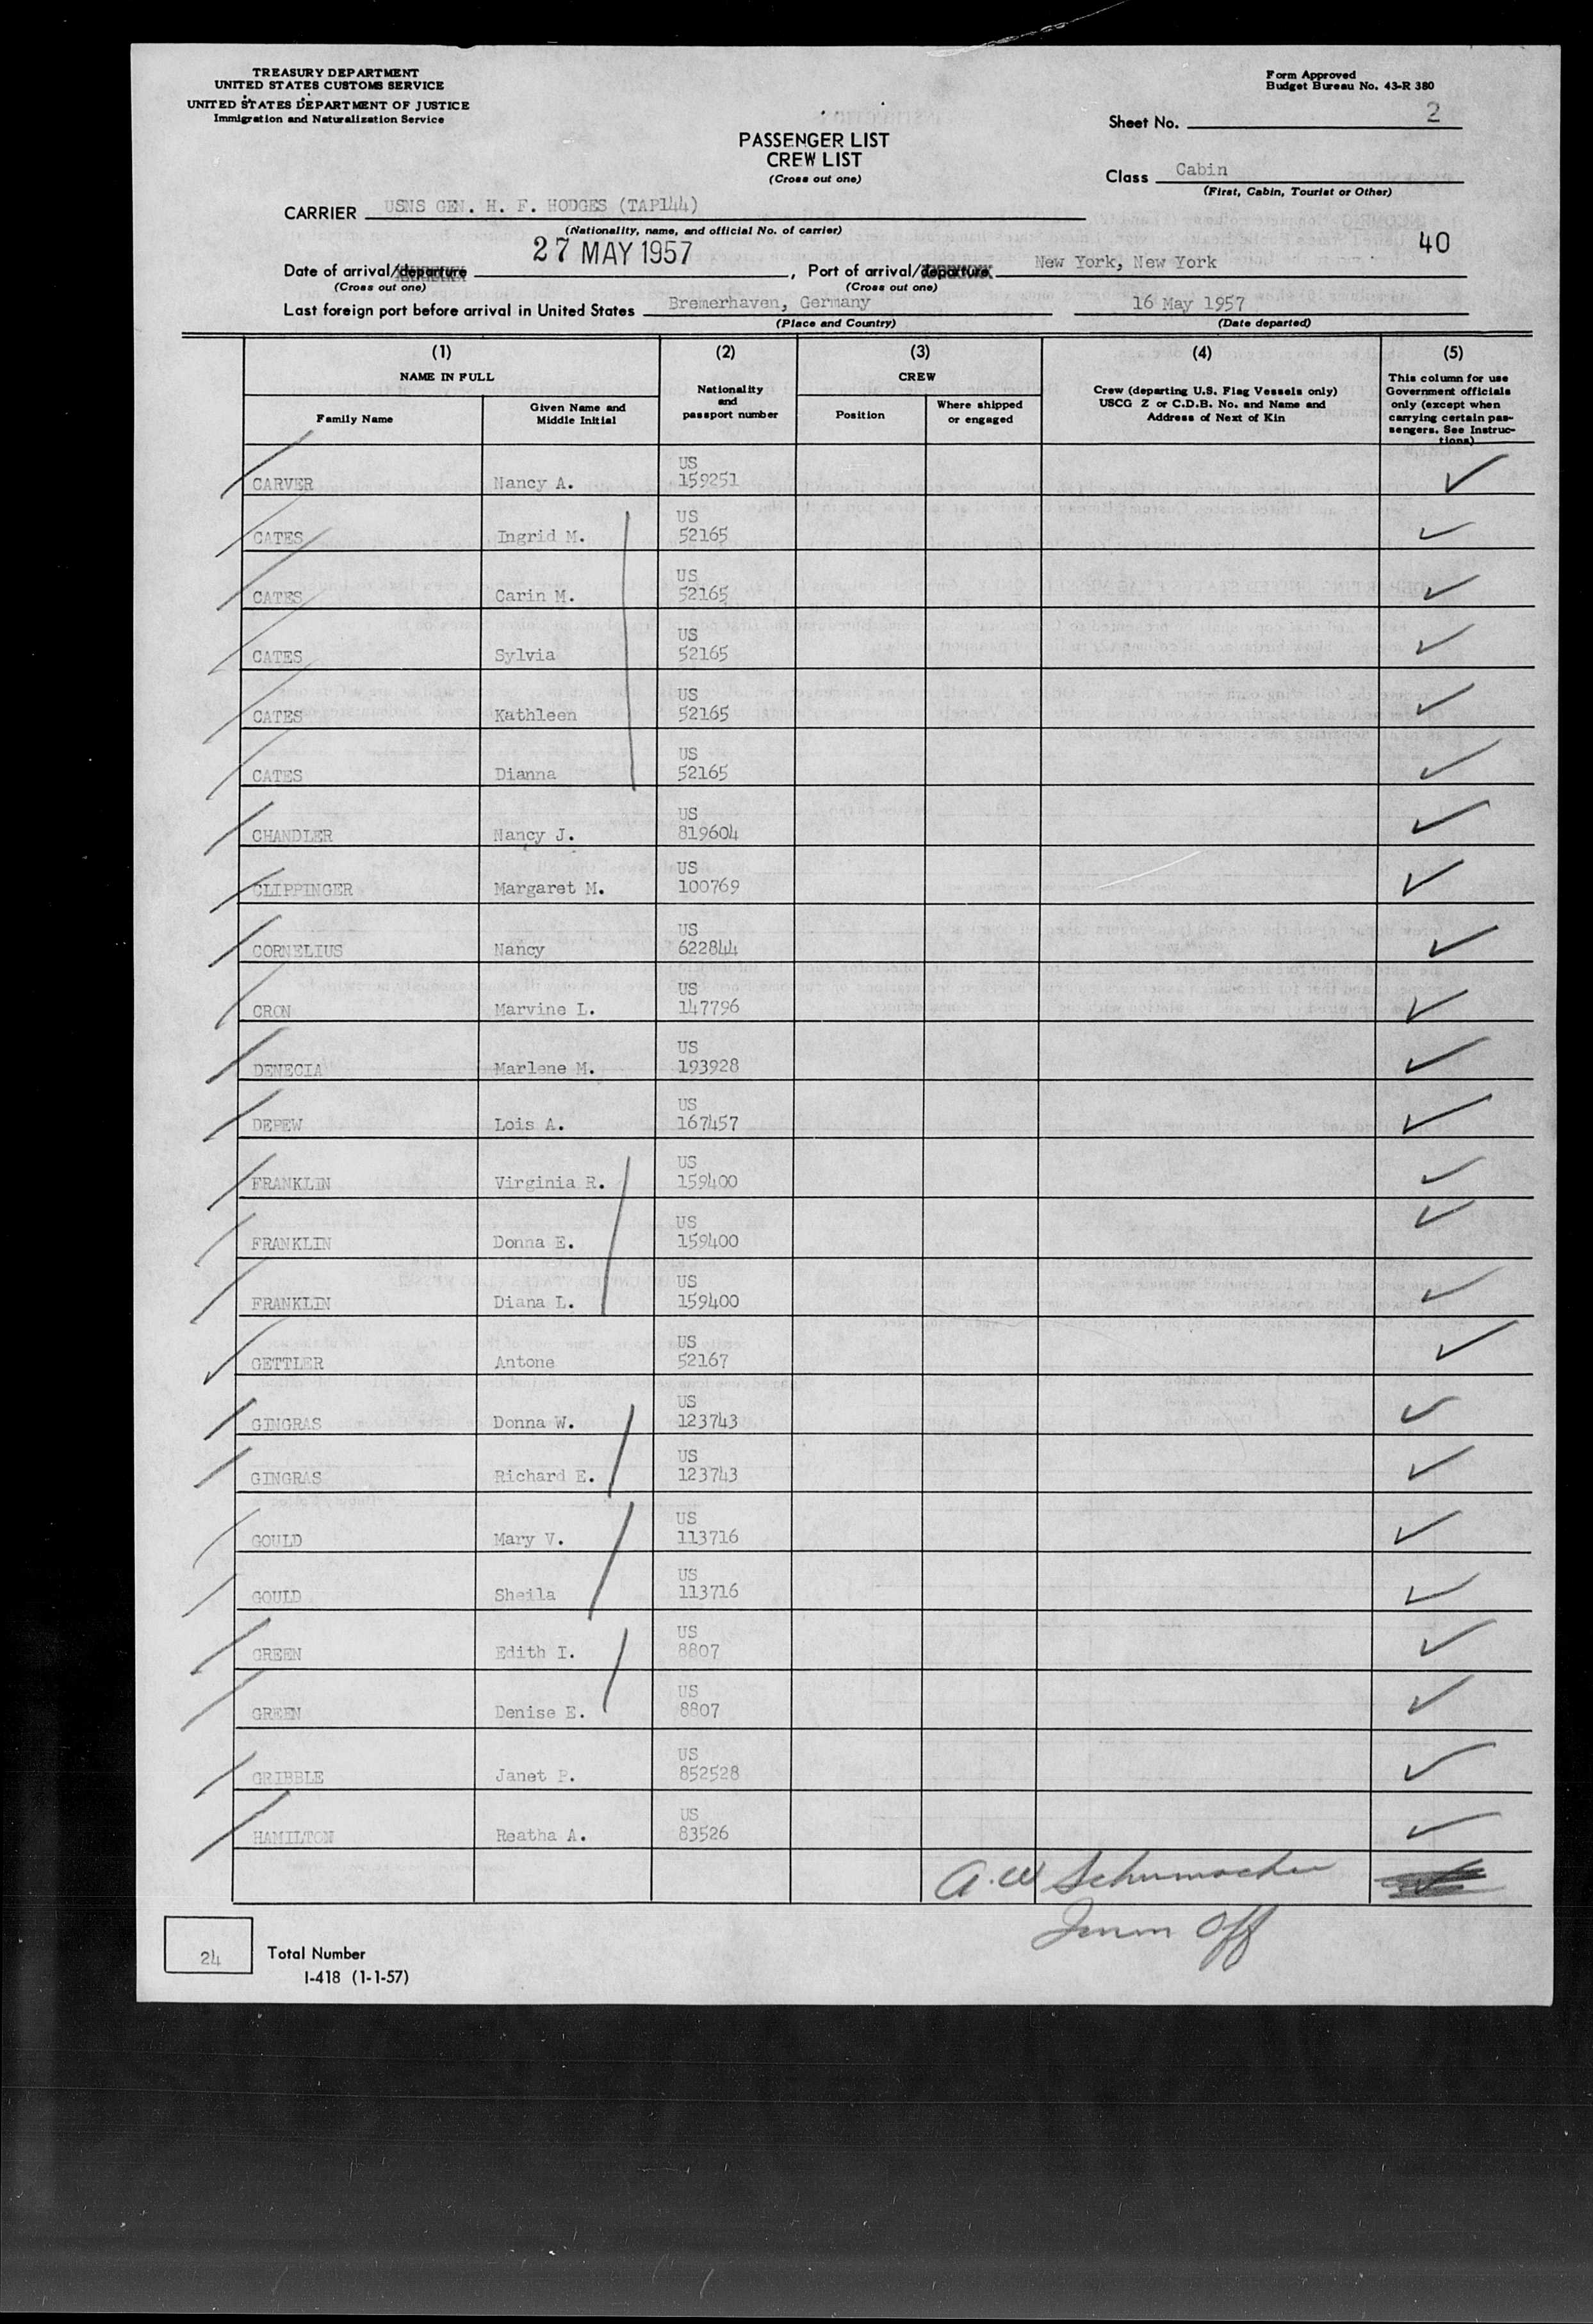 TREASURY DEPARTMENT
UNITED STATES CUSTOMS SERVICE
UNITED STATES DEPARTMENT OF JUSTICE
Immigration and Naturalization Service
Form Approved
Budget Bureau No. 43-R 380
Sheet No. 2
PASSENGER LIST
CREW LIST
(Cross out one)
Class Cabin
(First, Cabin, Tourist or Other)
CARRIER USNS GEN. H. F. HODGES (TAP144)
(Nationality, name, and official No. of carrier)
40
Date of arrival/departure 27 MAY 1957, Port of arrival/departure New York, New York
(Cross out one) (Cross out one)
Last foreign port before arrival in United States Bremerhaven, Germany 16 May 1957
(Place and Country) (Date departed)
(1) (2) (3) (4) (5)
NAME IN FULL
Family Name
Given Name and Middle Initial
Nationality and passport number
CREW
Position
Where shipped or engaged
Crew (departing U.S. Flag Vessels only)
USCG Z or C.D.B. No. and Name and
Address of Next of Kin
This column for use
Government officials
only (except when
carrying certain pas-
sengers. See Instruc-
tions)
CARVER Nancy A. US 159251
CATES Ingrid M. US 52165
CATES Carin M. US 52165
CATES Sylvia US 52165
CATES Kathleen US 52165
CATES Dianna US 52165
CHANDLER Nancy J. US 819604
CLIPPINGER Margaret M. US 100769
CORNELIUS Nancy US 622844
CRON Marvine L. US 147796
DENECIA Marlene M. US 193928
DEPEW Lois A. US 167457
FRANKLIN Virginia R. US 159400
FRANKLIN Donna E. US 159400
FRANKLIN Diana L. US 159400
GETTLER Antone US 52167
GINGRAS Donna W. US 123743
GINGRAS Richard E. US 123743
GOULD Mary V. US 113716
GOULD Sheila US 113716
GREEN Edith I. US 8807
GREEN Denise E. US 8807
GRIBBLE Janet P. US 852528
HAMILTON Reatha A. US 83526
A. W. Schumacher
Immn Off
24 Total Number
I-418 (1-1-57)